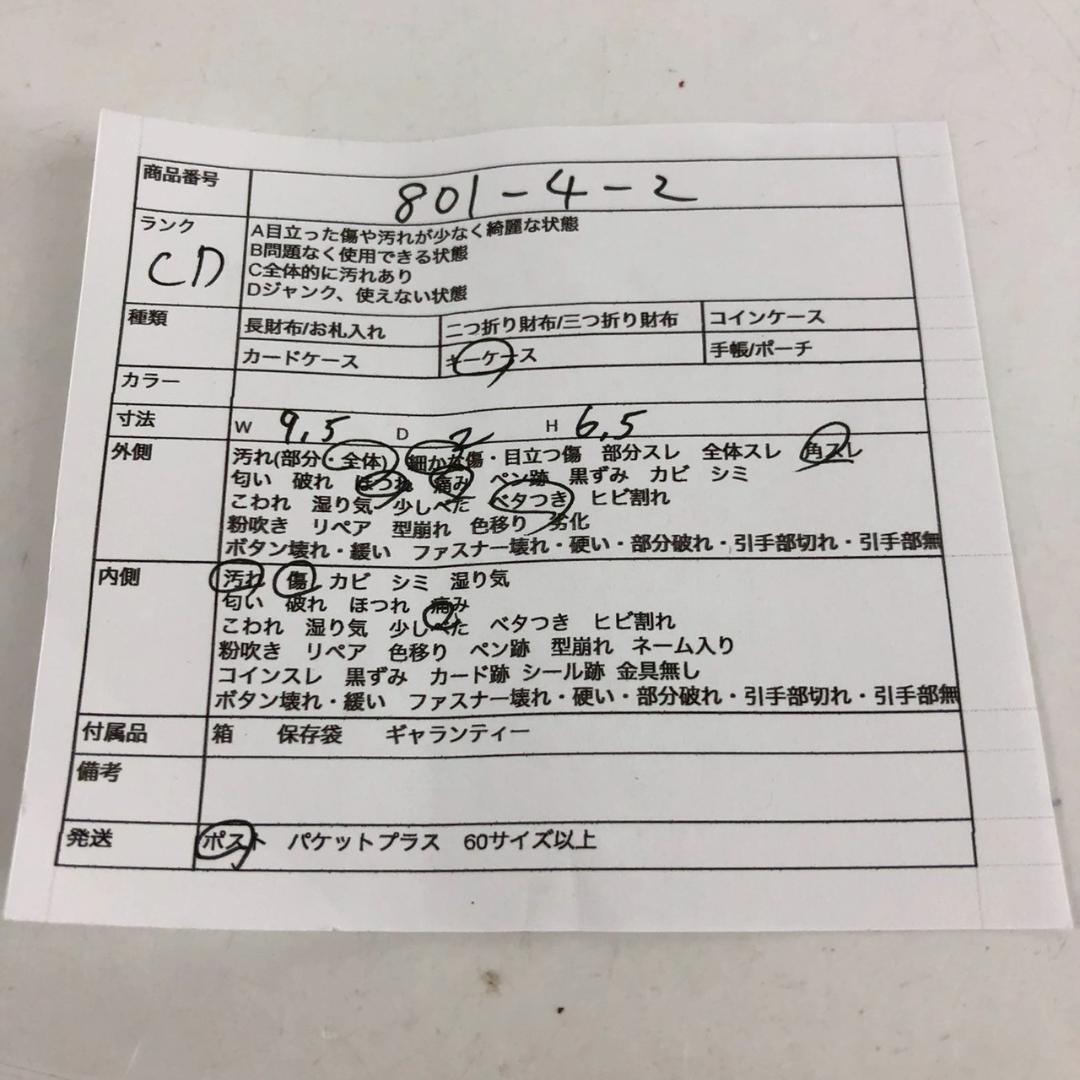 商品番号 801-4-2
ランク CD
A目立った傷や汚れが少なく綺麗な状態
B問題なく使用できる状態
C全体的に汚れあり
Dジャンク、使えない状態
種類 長財布/お札入れ 二つ折り財布/三つ折り財布 コインケース
カードケース キーケース 手帳/ポーチ
カラー
寸法 W 9,5 D 2 H 6,5
外側 汚れ(部分・全体) 細かな傷・目立つ傷 部分スレ 全体スレ 角スレ
匂い 破れ ほつれ 痛み ペン跡 黒ずみ カビ シミ
こわれ 湿り気 少しべた ベタつき ヒビ割れ
粉吹き リペア 型崩れ 色移り 劣化
ボタン壊れ・緩い ファスナー壊れ・硬い・部分破れ・引手部切れ・引手部無
内側 汚れ 傷 カビ シミ 湿り気
匂い 破れ ほつれ 痛み
こわれ 湿り気 少しべた ベタつき ヒビ割れ
粉吹き リペア 色移り ペン跡 型崩れ ネーム入り
コインスレ 黒ずみ カード跡 シール跡 金具無し
ボタン壊れ・緩い ファスナー壊れ・硬い・部分破れ・引手部切れ・引手部無
付属品 箱 保存袋 ギャランティー
備考
発送 ポスト パケットプラス 60サイズ以上